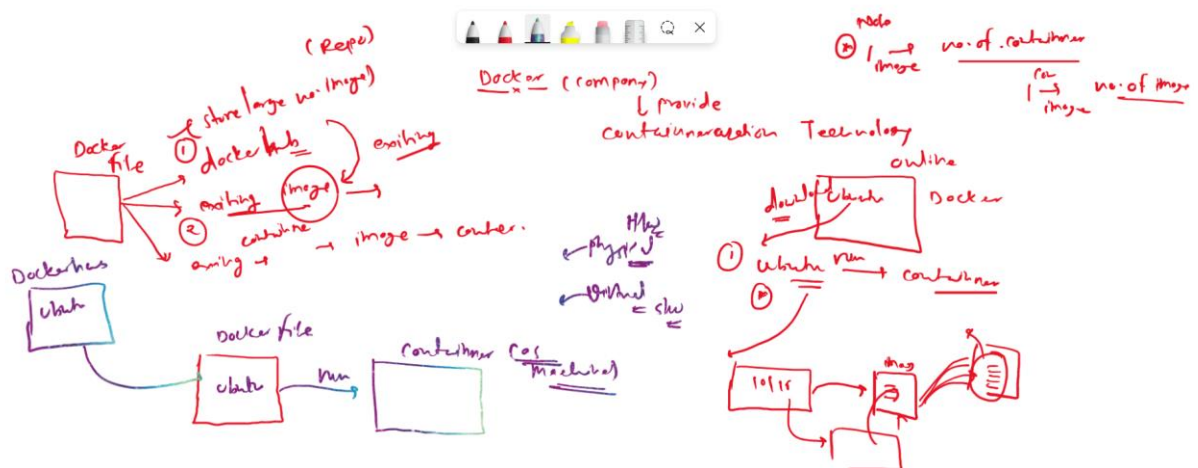 (Repo)
(store large no. image)
① dockerhub
exiting
Docker
file
② exiting image
exiting → containe → image → conter.
Dockerhus
Ubuntu
Docker file
Ubuntu
run
Containner (os
machine)
Docker (company)
↓ provide
containnerazation Technology
Hw
physical
virtual
sw
Node
1 image → no. of containner
1 image → no. of image
online
download
Ubuntu
Docker
① Ubuntu run → containner
10/15
imag